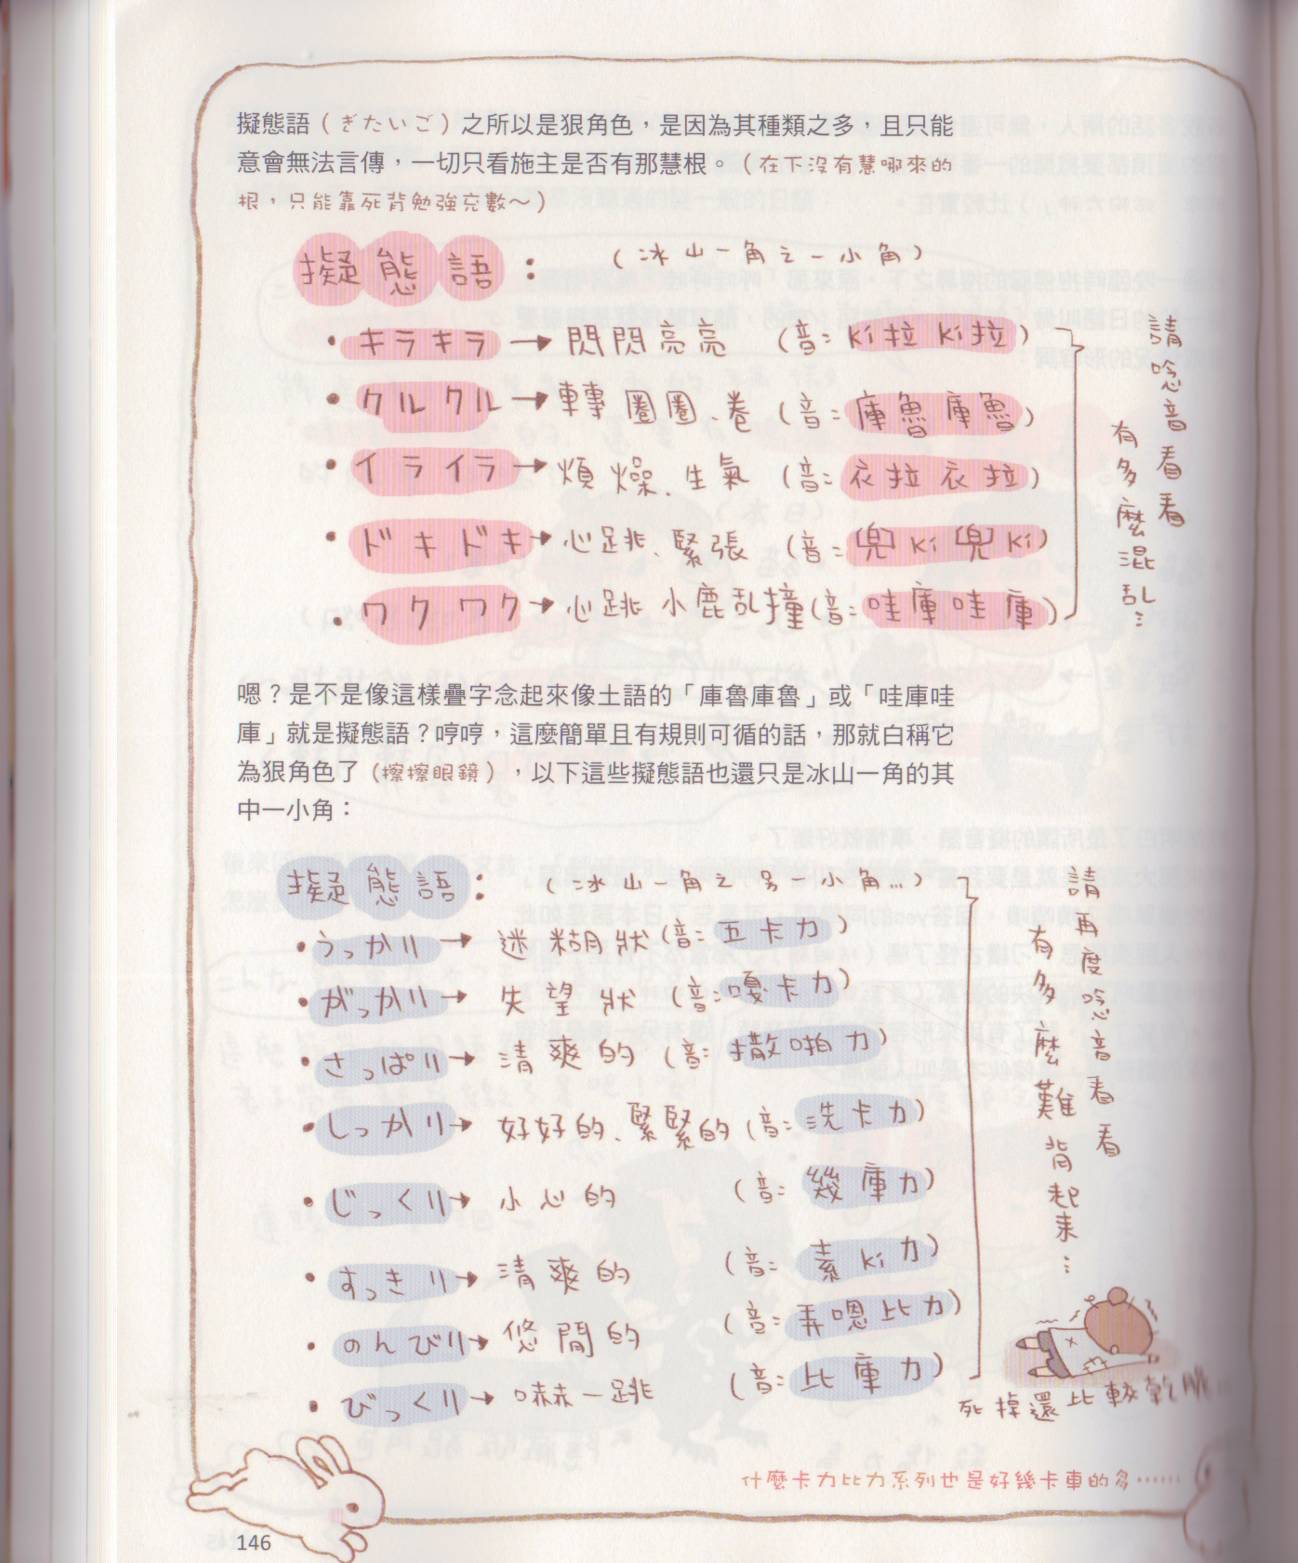 擬態語（ぎたいご）之所以是狠角色，是因為其種類之多，且只能
意會無法言傳，一切只看施主是否有那慧根。（在下沒有慧哪來的
根，只能靠死背勉強充數～）
擬態語：（冰山一角之一小角）
・キラキラ→閃閃亮亮（音：ki拉ki拉）
・クルクル→轉圈圈、卷（音：庫魯庫魯）
・イライラ→煩燥、生氣（音：衣拉衣拉）
・ドキドキ→心跳、緊張（音：兜ki兜ki）
・ワクワク→心跳小鹿乱撞（音：哇庫哇庫）
請唸音看看
有多麼混乱…
嗯？是不是像這樣疊字念起來像土語的「庫魯庫魯」或「哇庫哇
庫」就是擬態語？哼哼，這麼簡單且有規則可循的話，那就白稱它
為狠角色了（擦擦眼鏡），以下這些擬態語也還只是冰山一角的其
中一小角：
擬態語：（冰山一角之另一小角…）
・うっかり→迷糊狀（音：五卡力）
・がっかり→失望狀（音：嘎卡力）
・さっぱり→清爽的（音：撒啪力）
・しっかり→好好的、緊緊的（音：洗卡力）
・じっくり→小心的（音：幾庫力）
・すっきり→清爽的（音：素ki力）
・のんびり→悠閒的（音：弄嗯比力）
・びっくり→嚇一跳（音：比庫力）
請再度唸音看看
有多麼難背起来…
死掉還比較乾脆
什麼卡力比力系列也是好幾卡車的多……
146